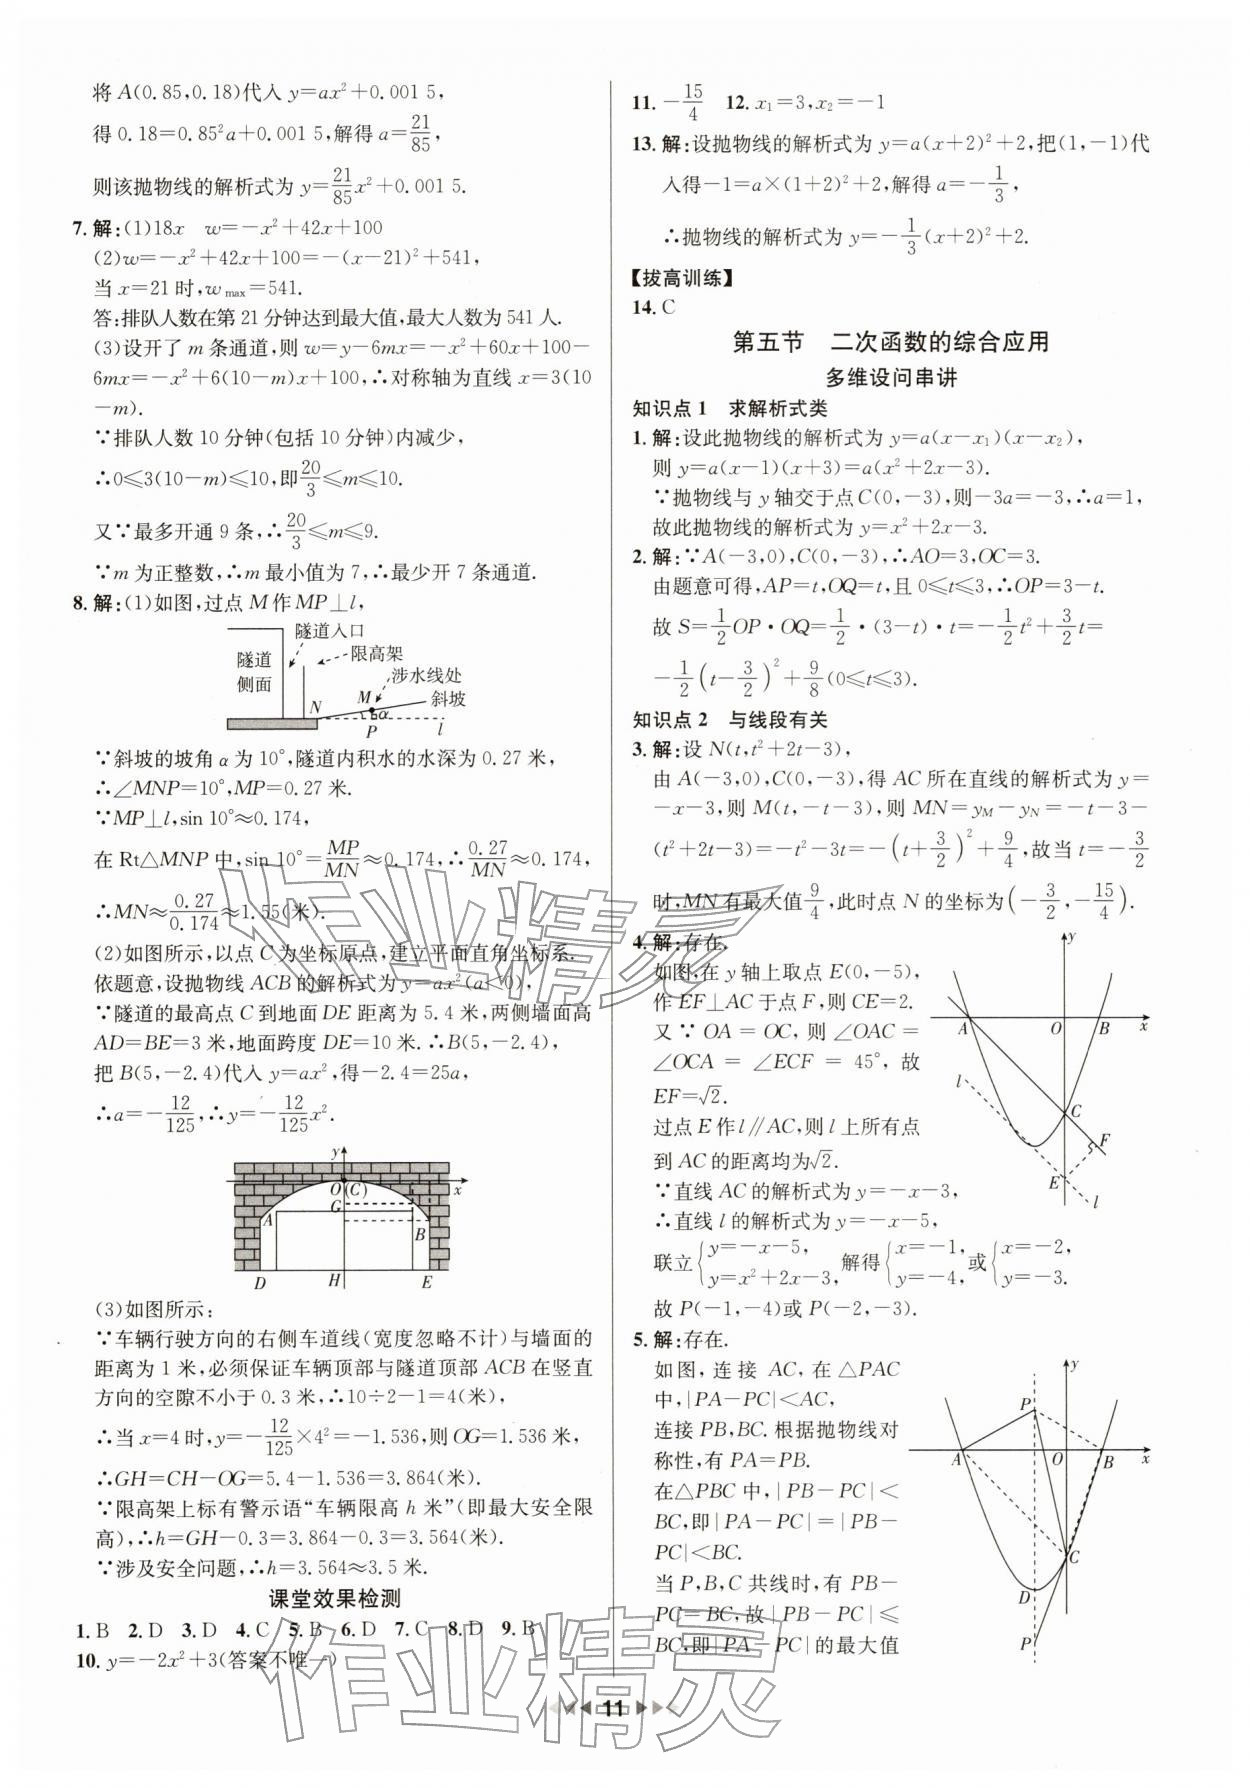 将A(0.85,0.18)代入 y=ax²+0.001 5,
得 0.18=0.85²a+0.001 5,解得 a=21/85,
则该抛物线的解析式为 y=21/85x²+0.001 5.
7.解:(1)18x w=-x²+42x+100
(2)w=-x²+42x+100=-(x-21)²+541,
当 x=21 时,w max=541.
答:排队人数在第 21 分钟达到最大值,最大人数为 541 人.
(3)设开了 m 条通道,则 w=y-6mx=-x²+60x+100-
6mx=-x²+6(10-m)x+100,∴对称轴为直线 x=3(10
-m).
∵排队人数 10 分钟(包括 10 分钟)内减少,
∴0≤3(10-m)≤10,即20/3≤m≤10.
又∵最多开通 9 条,∴20/3≤m≤9.
∵m 为正整数,∴m 最小值为 7,∴最少开 7 条通道.
8.解:(1)如图,过点 M 作 MP⊥l,
隧道入口
隧道
侧面
限高架
涉水线处
M
斜坡
N
α
P
l
∵斜坡的坡角 α 为 10°,隧道内积水的水深为 0.27 米,
∴∠MNP=10°,MP=0.27 米.
∵MP⊥l,sin 10°≈0.174,
在 Rt△MNP 中,sin 10°=MP/MN≈0.174,∴0.27/MN≈0.174,
∴MN≈0.27/0.174≈1.55(米).
(2)如图所示,以点 C 为坐标原点,建立平面直角坐标系.
依题意,设抛物线 ACB 的解析式为 y=ax²(a<0),
∵隧道的最高点 C 到地面 DE 距离为 5.4 米,两侧墙面高
AD=BE=3 米,地面跨度 DE=10 米.∴B(5,-2.4),
把 B(5,-2.4)代入 y=ax²,得-2.4=25a,
∴a=-12/125,∴y=-12/125x².
y
O (C)
x
G
A
B
D
H
E
(3)如图所示:
∵车辆行驶方向的右侧车道线(宽度忽略不计)与墙面的
距离为 1 米,必须保证车辆顶部与隧道顶部 ACB 在竖直
方向的空隙不小于 0.3 米,∴10÷2-1=4(米),
∴当 x=4 时,y=-12/125×4²=-1.536,则 OG=1.536 米,
∴GH=CH-OG=5.4-1.536=3.864(米).
∵限高架上标有警示语“车辆限高 h 米”(即最大安全限
高),∴h=GH-0.3=3.864-0.3=3.564(米).
∵涉及安全问题,∴h=3.564≈3.5 米.
课堂效果检测
1.B 2.D 3.D 4.C 5.B 6.D 7.C 8.D 9.B
10.y=-2x²+3(答案不唯一)
11.-15/4 12.x₁=3,x₂=-1
13.解:设抛物线的解析式为 y=a(x+2)²+2,把(1,-1)代
入得-1=a×(1+2)²+2,解得 a=-1/3,
∴抛物线的解析式为 y=-1/3(x+2)²+2.
【拔高训练】
14.C
第五节 二次函数的综合应用
多维设问串讲
知识点 1 求解析式类
1.解:设此抛物线的解析式为 y=a(x-x₁)(x-x₂),
则 y=a(x-1)(x+3)=a(x²+2x-3).
∵抛物线与 y 轴交于点 C(0,-3),则-3a=-3,∴a=1,
故此抛物线的解析式为 y=x²+2x-3.
2.解:∵A(-3,0),C(0,-3),∴AO=3,OC=3.
由题意可得,AP=t,OQ=t,且 0≤t≤3,∴OP=3-t.
故 S=1/2OP·OQ=1/2·(3-t)·t=-1/2t²+3/2t=
-1/2(t-3/2)²+9/8(0≤t≤3).
知识点 2 与线段有关
3.解:设 N(t,t²+2t-3),
由 A(-3,0),C(0,-3),得 AC 所在直线的解析式为 y=
-x-3,则 M(t,-t-3),则 MN=yM-yN=-t-3-
(t²+2t-3)=-t²-3t=-(t+3/2)²+9/4,故当 t=-3/2
时,MN 有最大值9/4,此时点 N 的坐标为(-3/2,-15/4).
4.解:存在.
如图,在 y 轴上取点 E(0,-5),
作 EF⊥AC 于点 F,则 CE=2.
又∵OA=OC,则∠OAC=
∠OCA=∠ECF=45°,故
EF=√2.
过点 E 作 l∥AC,则 l 上所有点
到 AC 的距离均为√2.
∵直线 AC 的解析式为 y=-x-3,
∴直线 l 的解析式为 y=-x-5,
联立{y=-x-5, y=x²+2x-3,解得{x=-1, y=-4,或{x=-2, y=-3.
故 P(-1,-4)或 P(-2,-3).
y
A
O
B
x
l
C
F
E
l
5.解:存在.
如图,连接 AC,在△PAC
中,|PA-PC|<AC,
连接 PB,BC.根据抛物线对
称性,有 PA=PB.
在△PBC 中,|PB-PC|<
BC,即|PA-PC|=|PB-
PC|<BC.
当 P,B,C 共线时,有 PB-
PC=BC,故|PA-PC|≤
BC,即|PA-PC|的最大值
y
P
A
O
B
x
C
D
P
作业精灵
作业精灵
11